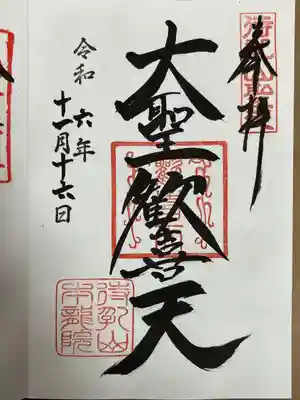 奉拝
大聖歓喜天
令和六年
十一月十六日
待乳山
本龍院